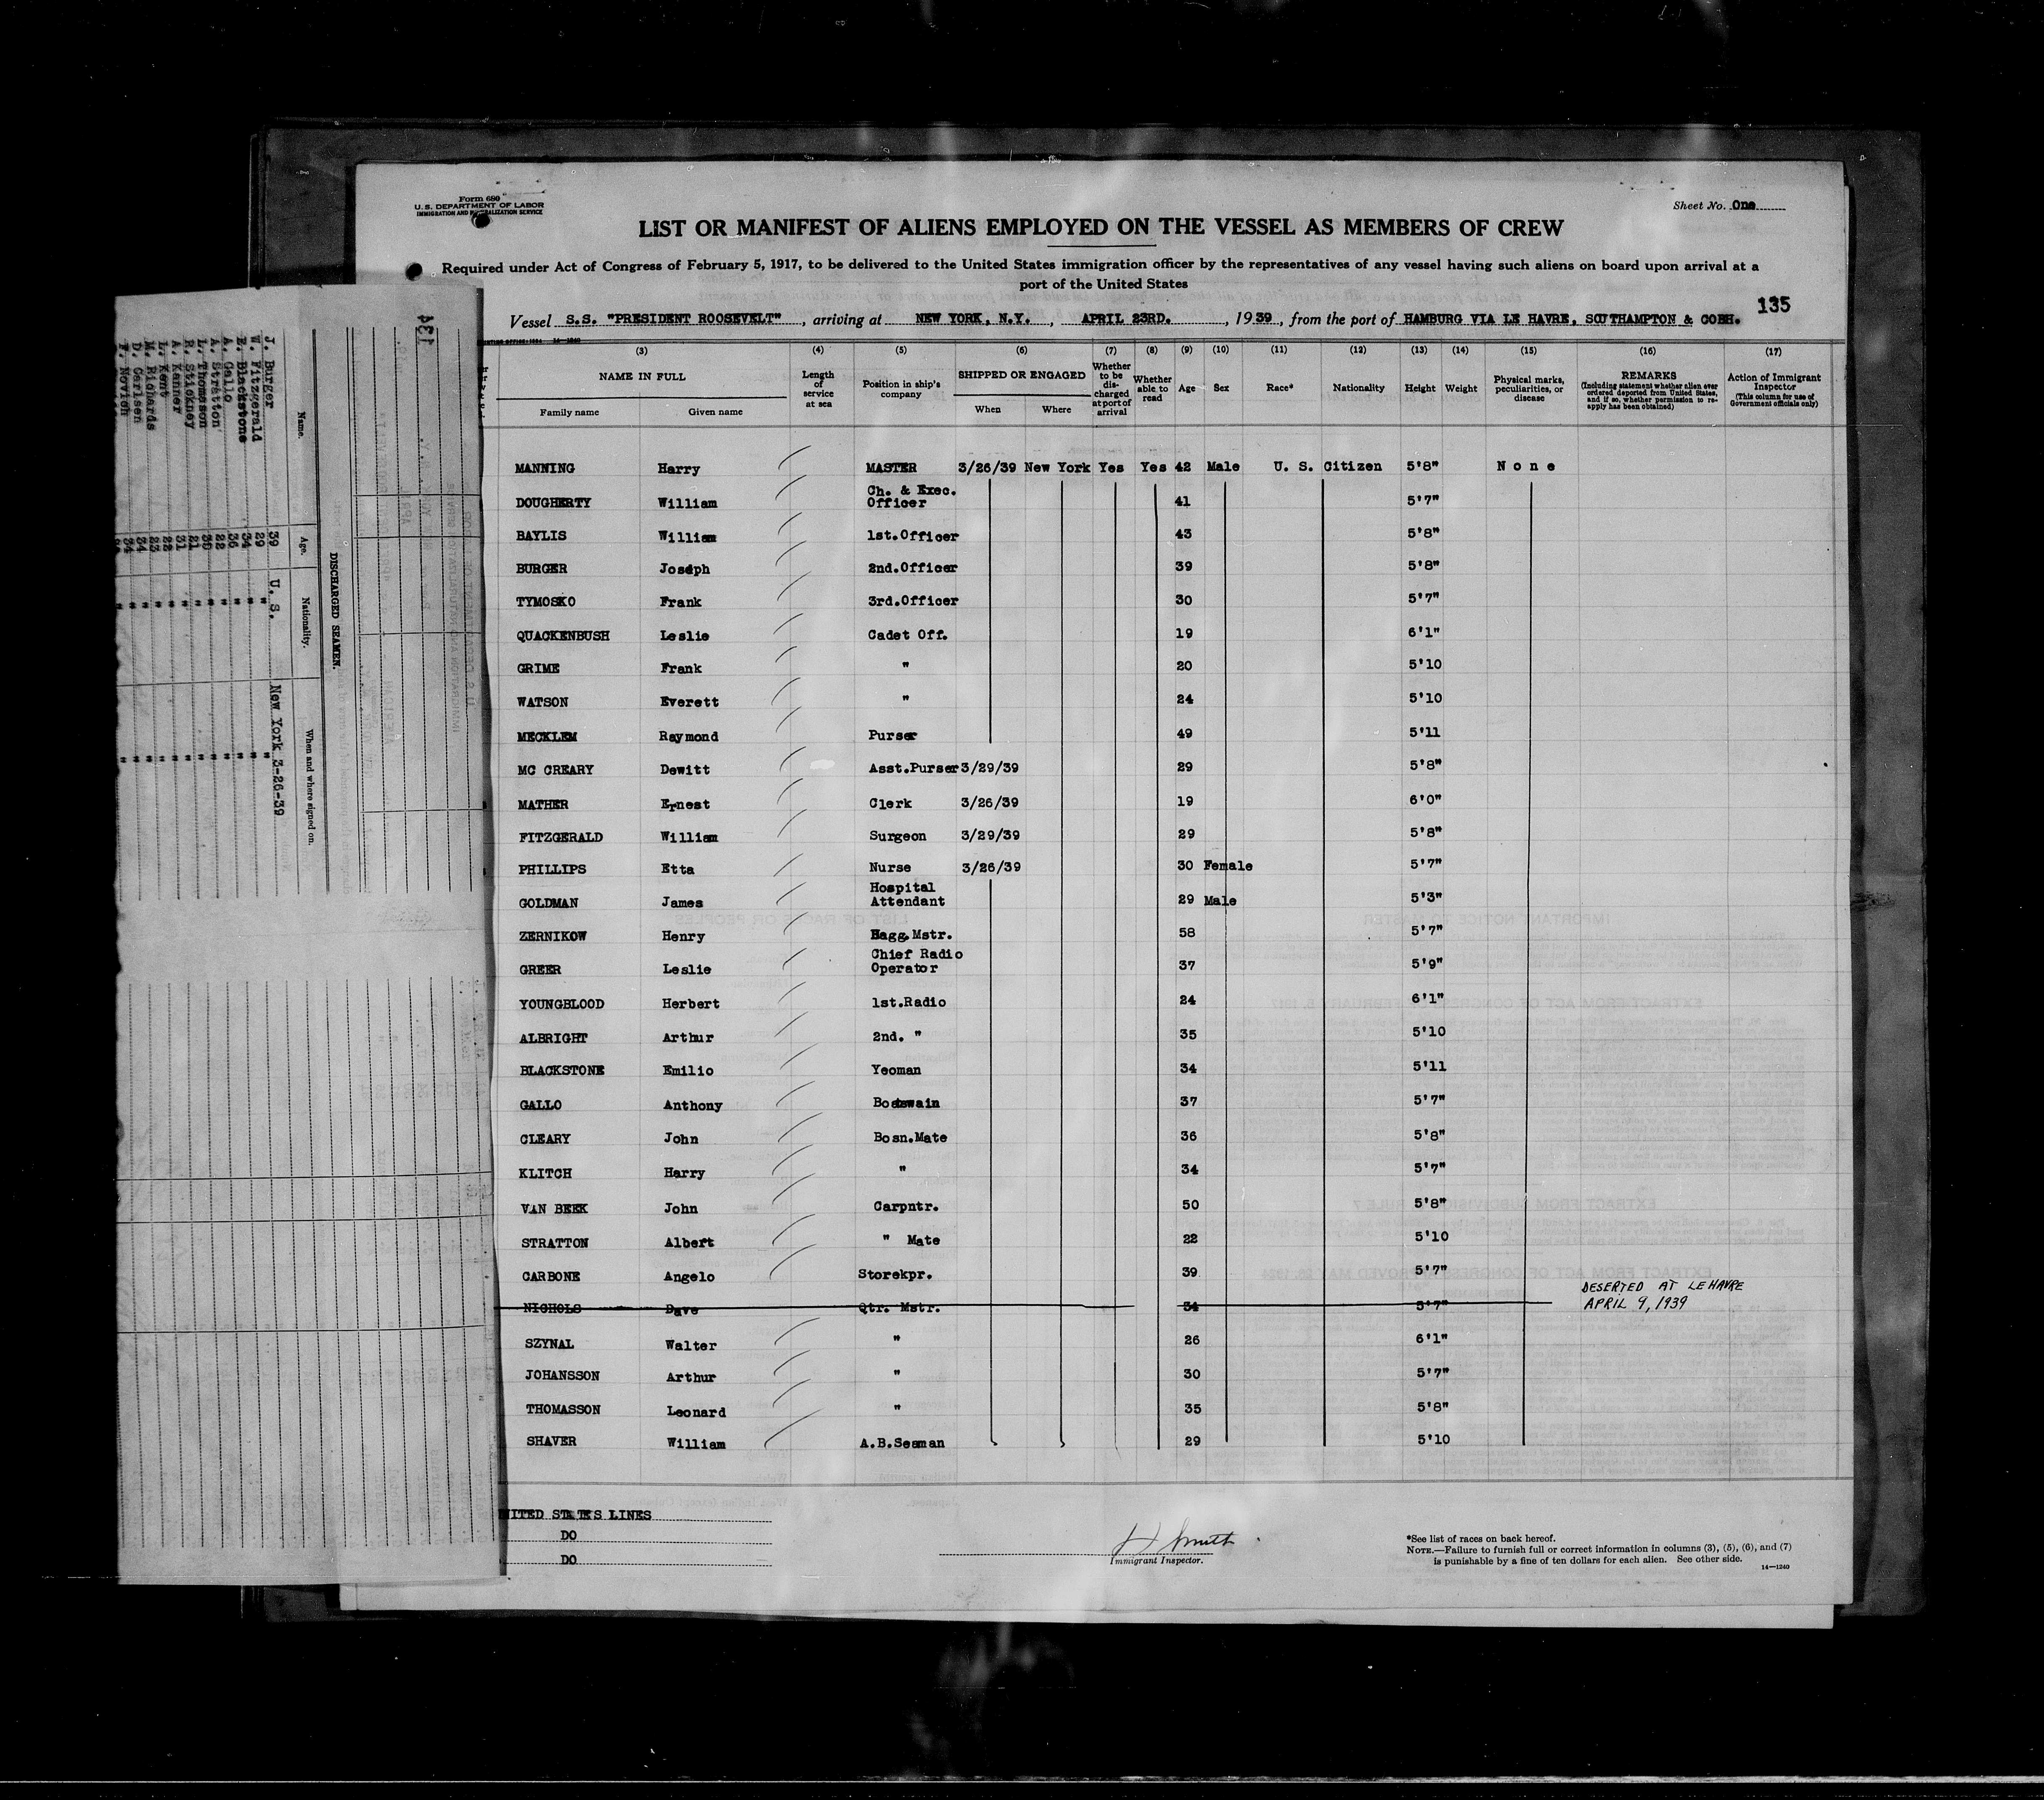 Form 680
U. S. DEPARTMENT OF LABOR
IMMIGRATION AND NATURALIZATION SERVICE
Sheet No. One
LIST OR MANIFEST OF ALIENS EMPLOYED ON THE VESSEL AS MEMBERS OF CREW
Required under Act of Congress of February 5, 1917, to be delivered to the United States immigration officer by the representatives of any vessel having such aliens on board upon arrival at a
port of the United States
135
Vessel S.S. "PRESIDENT ROOSEVELT", arriving at NEW YORK, N.Y., APRIL 23RD., 1939, from the port of HAMBURG VIA LE HAVRE, SOUTHAMPTON & COBH.
(3) (4) (5) (6) (7) (8) (9) (10) (11) (12) (13) (14) (15) (16) (17)
NAME IN FULL
Family name Given name
Length of service at sea
Position in ship's company
SHIPPED OR ENGAGED
When Where
Whether to be discharged at port of arrival
Whether able to read
Age
Sex
Race*
Nationality
Height
Weight
Physical marks, peculiarities, or disease
REMARKS
(Including statement whether alien ever ordered deported from United States, and if so, whether permission to reapply has been obtained)
Action of Immigrant Inspector
(This column for use of Government officials only)
MANNING Harry MASTER 3/26/39 New York Yes Yes 42 Male U. S. Citizen 5'8" None
DOUGHERTY William Ch. & Exec. Officer 41 5'7"
BAYLIS William 1st.Officer 43 5'8"
BURGER Joseph 2nd.Officer 39 5'8"
TYMOSKO Frank 3rd.Officer 30 5'7"
QUACKENBUSH Leslie Cadet Off. 19 6'1"
GRIME Frank " 20 5'10
WATSON Everett " 24 5'10
MECKLEM Raymond Purser 49 5'11
MC CREARY Dewitt Asst.Purser 3/29/39 29 5'8"
MATHER Ernest Clerk 3/26/39 19 6'0"
FITZGERALD William Surgeon 3/29/39 29 5'8"
PHILLIPS Etta Nurse 3/26/39 30 Female 5'7"
GOLDMAN James Hospital Attendant 29 Male 5'3"
ZERNIKOW Henry Bagg.Mstr. 58 5'7"
GREER Leslie Chief Radio Operator 37 5'9"
YOUNGBLOOD Herbert 1st.Radio 24 6'1"
ALBRIGHT Arthur 2nd. " 35 5'10
BLACKSTONE Emilio Yeoman 34 5'11
GALLO Anthony Boatswain 37 5'7"
CLEARY John Bosn.Mate 36 5'8"
KLITCH Harry " 34 5'7"
VAN BEEK John Carpntr. 50 5'8"
STRATTON Albert " Mate 22 5'10
CARBONE Angelo Storekpr. 39 5'7"
NICHOLS Dave Qtr. Mstr. 34 5'7" DESERTED AT LE HAVRE
APRIL 9, 1939
SZYNAL Walter " 26 6'1"
JOHANSSON Arthur " 30 5'7"
THOMASSON Leonard " 35 5'8"
SHAVER William A.B.Seaman 29 5'10
UNITED STATES LINES
DO
DO
H Smith
Immigrant Inspector.
*See list of races on back hereof.
NOTE.—Failure to furnish full or correct information in columns (3), (5), (6), and (7)
is punishable by a fine of ten dollars for each alien. See other side.
14—1240
134
DISCHARGED SEAMEN.
Name. Age. Nationality. When and where signed on.
J. Burger 39 U. S. New York 3-26-39
W. Fitzgerald 29 " "
E. Blackstone 34 " "
A. Gallo 36 " "
A. Stratton 22 " "
L. Thomason 30 " "
R. Stickney 21 " "
A. Kanner 31 " "
L. Kent 22 " "
M. Richards 23 " "
D. Carlsen 34 " "
F. Novich 34 " "